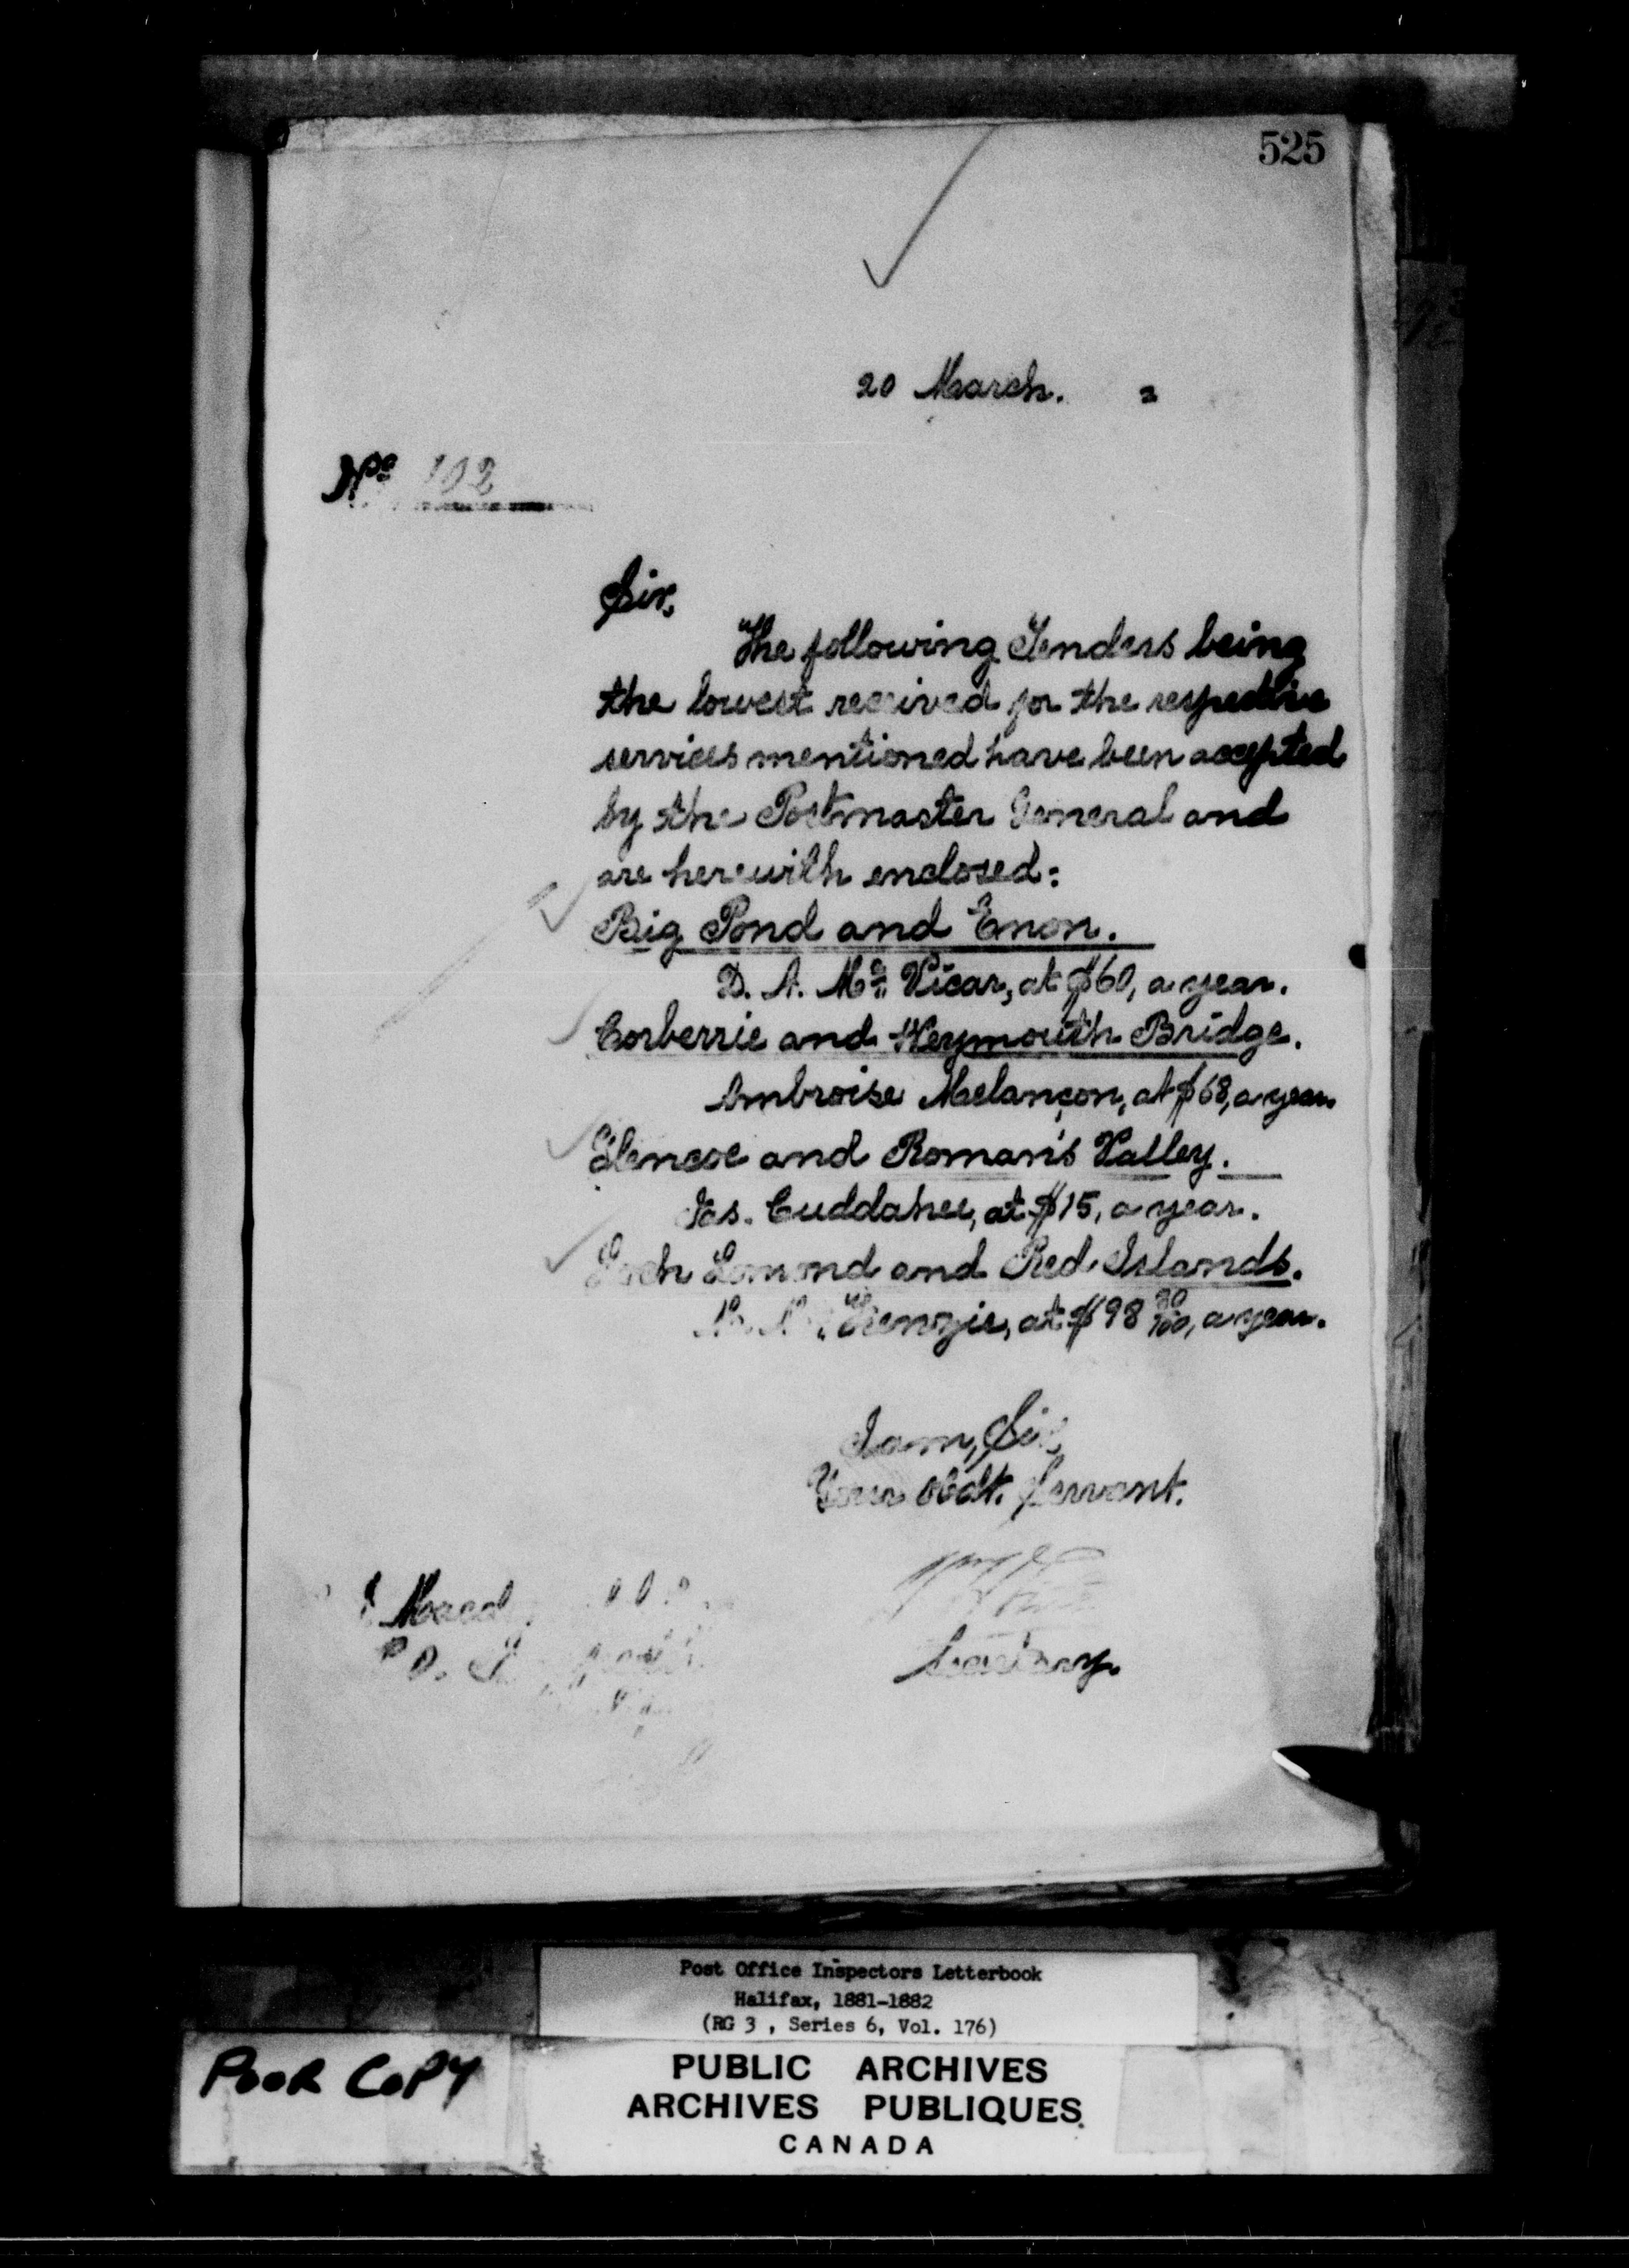 525
20 March. 2
No 102
Sir,
The following Tenders being
the lowest received for the respective
services mentioned have been accepted
by the Postmaster General and
are herewith enclosed:
Big Pond and Enon.
D. A. Mc Vicar, at $60, a year.
Corberrie and Weymouth Bridge.
Ambroise Melançon, at $68, a year.
Glencoe and Roman's Valley.
Jas. Cuddahee, at $15, a year.
Loch Lomond and Red Islands.
Kenzie, at $98 80/100, a year.
I am, Sir,
Your Obdt. Servant.
Secretary.
Post Office Inspectors Letterbook
Halifax, 1881-1882
(RG 3 , Series 6, Vol. 176)
POOR COPY
PUBLIC ARCHIVES
ARCHIVES PUBLIQUES
CANADA